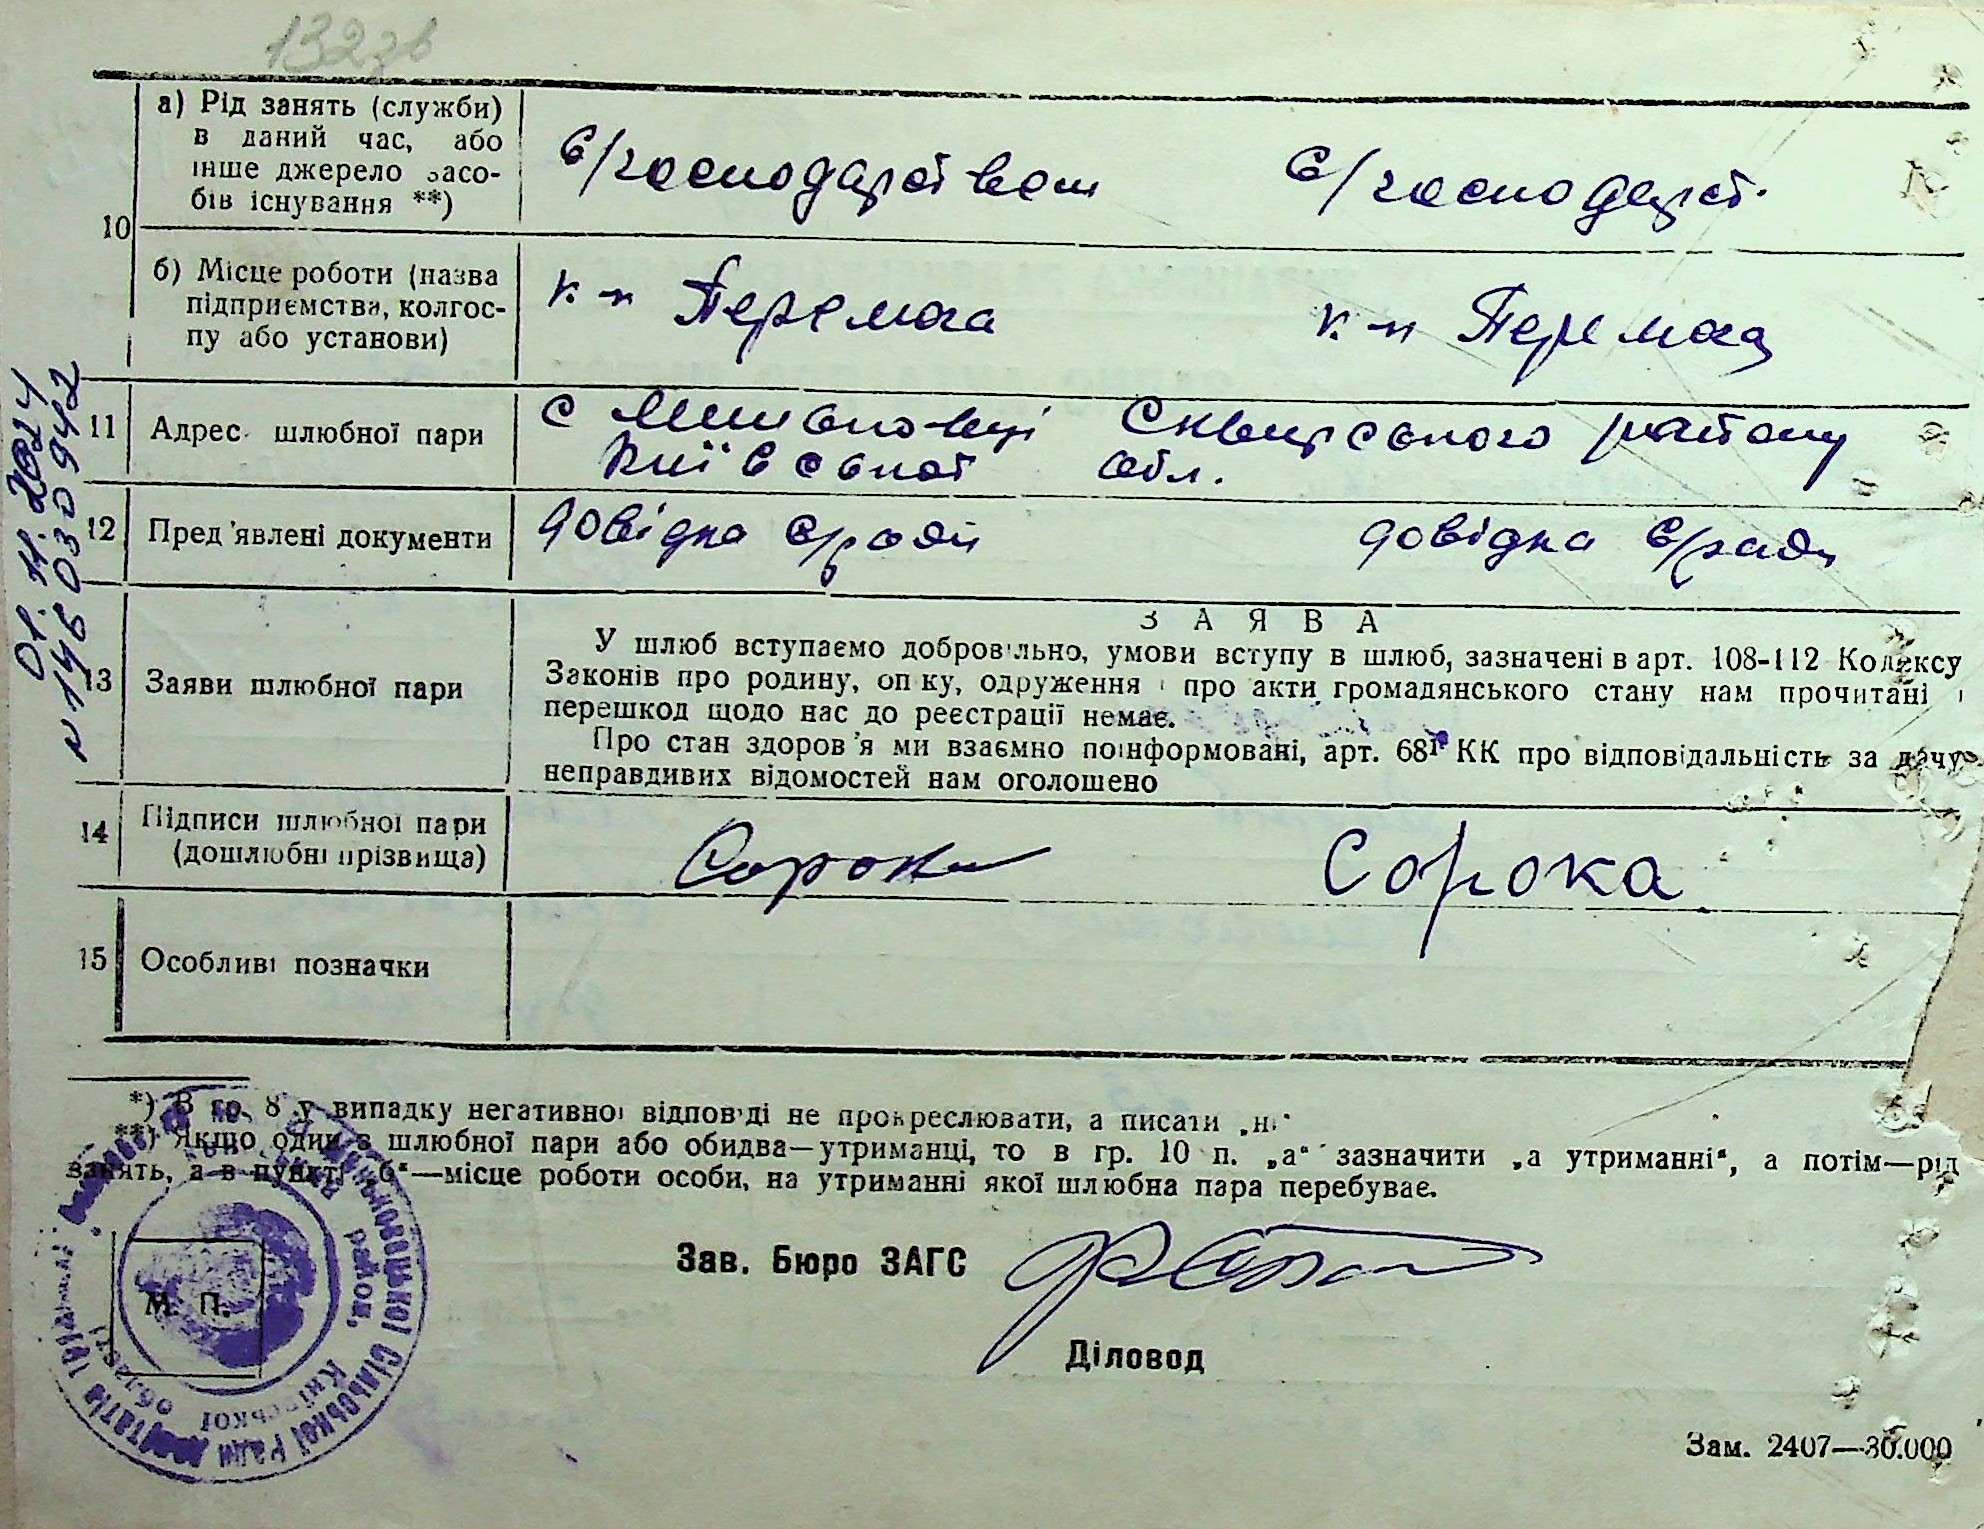 132зв
а) Рід занять (служби)
в даний час, або
інше джерело засо-
бів існування **)
с/господарством
с/господарст.
10
б) Місце роботи (назва
підприємства, колгос-
пу або установи)
к-п Перемога
к-п Перемога
11 Адрес шлюбної пари
с Сквирського району
Київської обл.
12 Пред'явлені документи
довідка с/ради
довідка с/ради
13 Заяви шлюбної пари
ЗАЯВА
У шлюб вступаємо добровільно, умови вступу в шлюб, зазначені в арт. 108-112 Кодексу
Законів про родину, опіку, одруження і про акти громадянського стану нам прочитані і
перешкод щодо нас до реєстрації немає.
Про стан здоров'я ми взаємно поінформовані, арт. 68¹ КК про відповідальність за дачу
неправдивих відомостей нам оголошено
14 Підписи шлюбної пари
(дошлюбні прізвища)
Сорока
Сорока
15 Особливі позначки
01.11.2024
N 146 0309442
*) В гр. 8 у випадку негативної відповіді не прокреслювати, а писати „ні“
**) Якщо один з шлюбної пари або обидва—утриманці, то в гр. 10 п. „а“ зазначити „а утриманні“, а потім—рід
занять, а в пункті „б“—місце роботи особи, на утриманні якої шлюбна пара перебуває.
М. П.
сільської Ради депутатів трудящих
район, Київської області
Зав. Бюро ЗАГС
Діловод
Зам. 2407—30.000